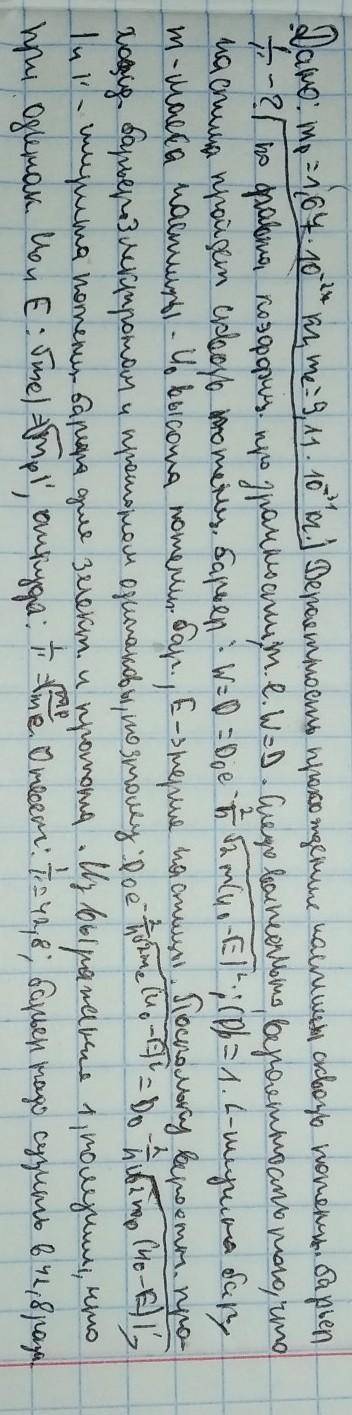 Дано: mp = 1,67·10^-27 кг, me = 9,11·10^-31 кг. | Вероятность прохождения частицы сквозь потенц. барьер
l/l' - ? | по равна коэффиц. прозрачности, т. е. W=D. Следовательно, вероятность того, что
частица пройдет сквозь потенц. барьер: W=D=D₀e^(-2/ħ √2m(U₀-E) L); (D₀)=1. L-ширина бар.,
m-масса частицы - U₀ высота потенц. бар., E-энергия частицы. Поскольку вероятн. про-
хожд. барьера электроном и протоном одинаковы, поэтому: D₀e^(-2/ħ √2me(U₀-E) l) = D₀ ^(-2/ħ √2mp(U₀-E) l'),
l и l' - ширина потенц. барьера для электр. и протона. Из выражения 1, получим, что
при одинак. U₀ и E: √me l = √mp l', откуда: l/l' = √mp/me. Ответ: l/l' = 42,8; барьер надо сузить в 42,8 раза.